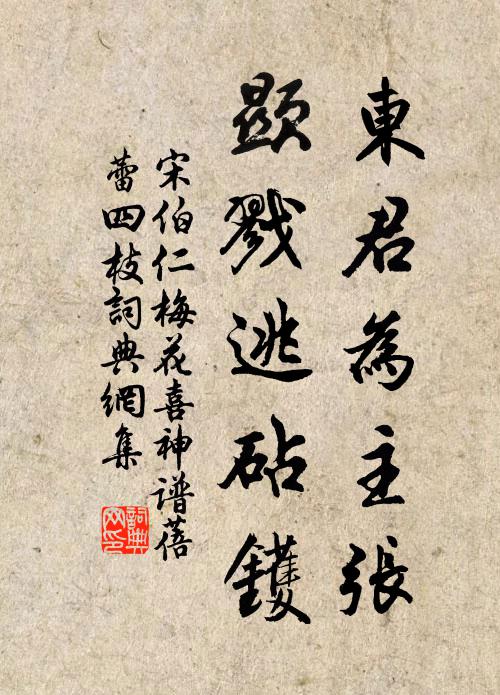 東君為主張
顯戮逃砧鑊
宋伯仁梅花喜神譜蓓
蕾四枝詞典網集
詞典
网印